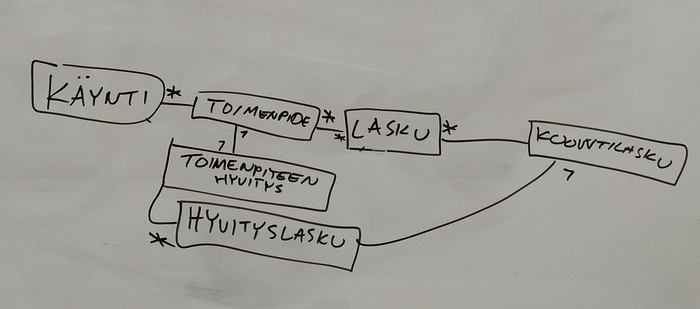 KÄYNTI *
TOIMENPIDE *
* LASKU *
KOONTILASKU
1
1
1
TOIMENPITEEN
HYVITYS
HYVITYSLASKU
*